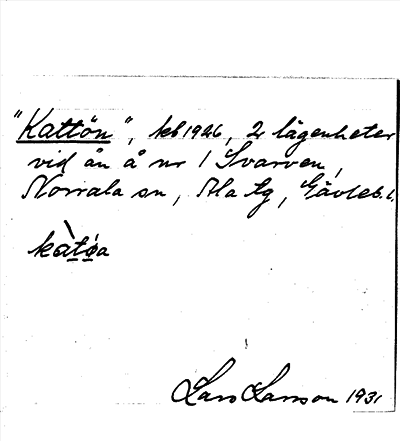 "Kattön", kb 1926, 2 lägenheter
vid ån å nr 1 Svarven,
Norrala sn, Ala tg, Gävleb. l.
kàtǿa
Lars Larsson 1931